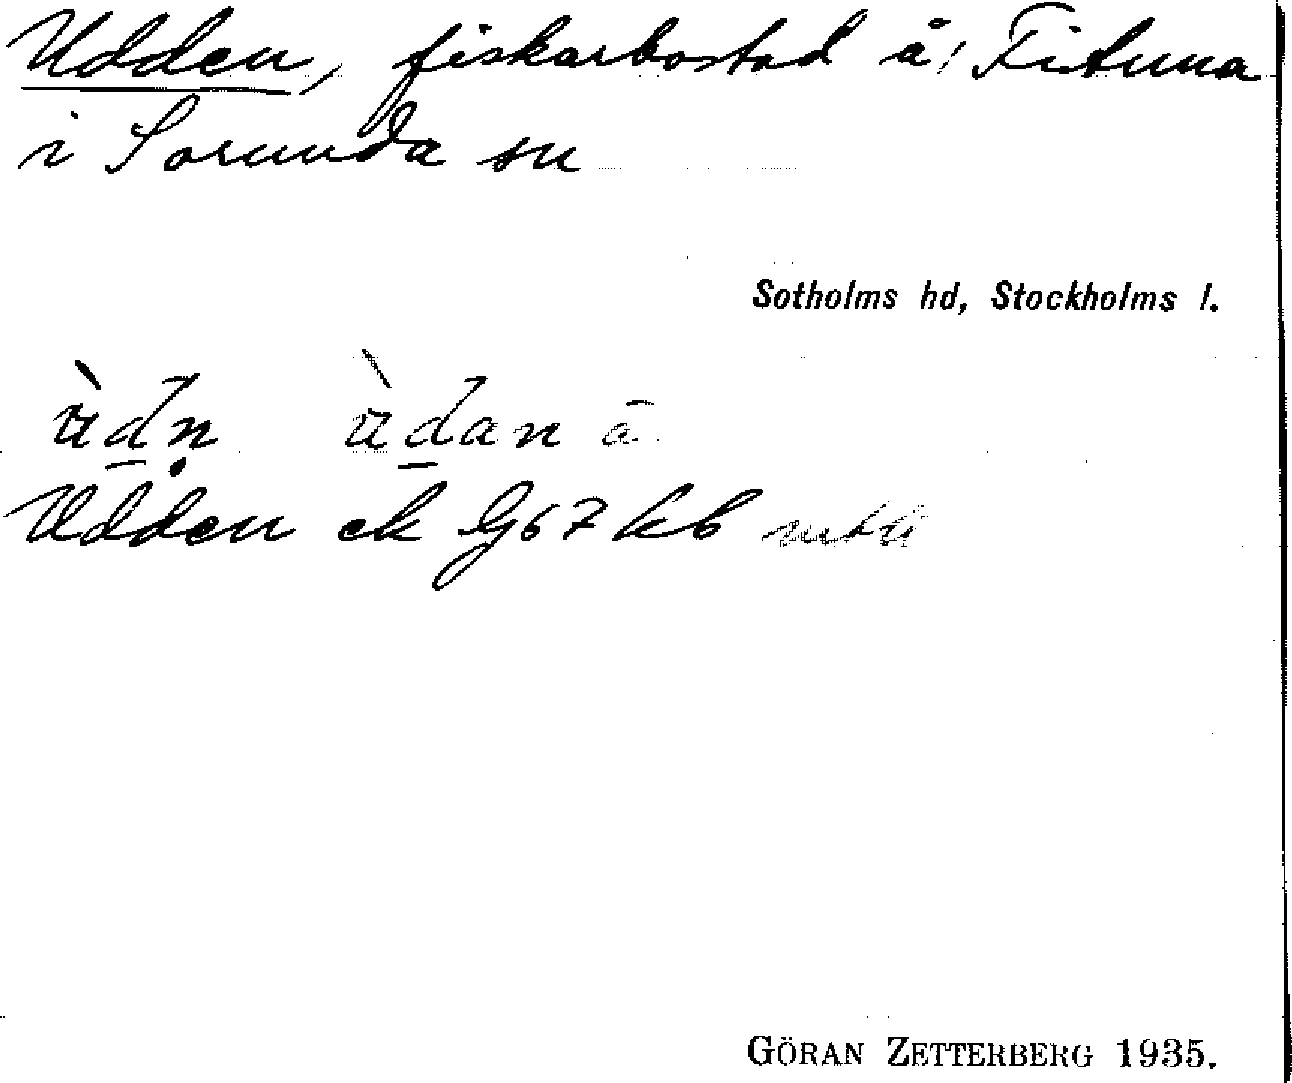 Udden, fiskarbostad å, Fituna
i Sorunda sn
Sotholms hd, Stockholms l.
ùdn ùdan ā
Udden ek G67kb
GÖRAN ZETTERBERG 1935.